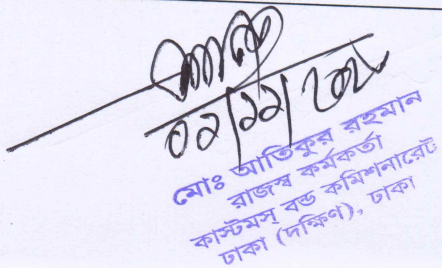 মোঃ আতিকুর রহমান
রাজস্ব কর্মকর্তা
কাস্টমস্ বন্ড কমিশনারেট
ঢাকা (দক্ষিণ), ঢাকা